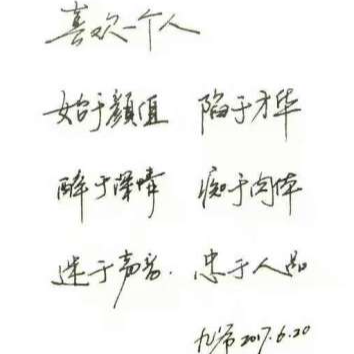 喜欢一个人
始于颜值 陷于才华
醉于深情 痴于肉体
迷于声音. 忠于人品
九希 2017.6.20